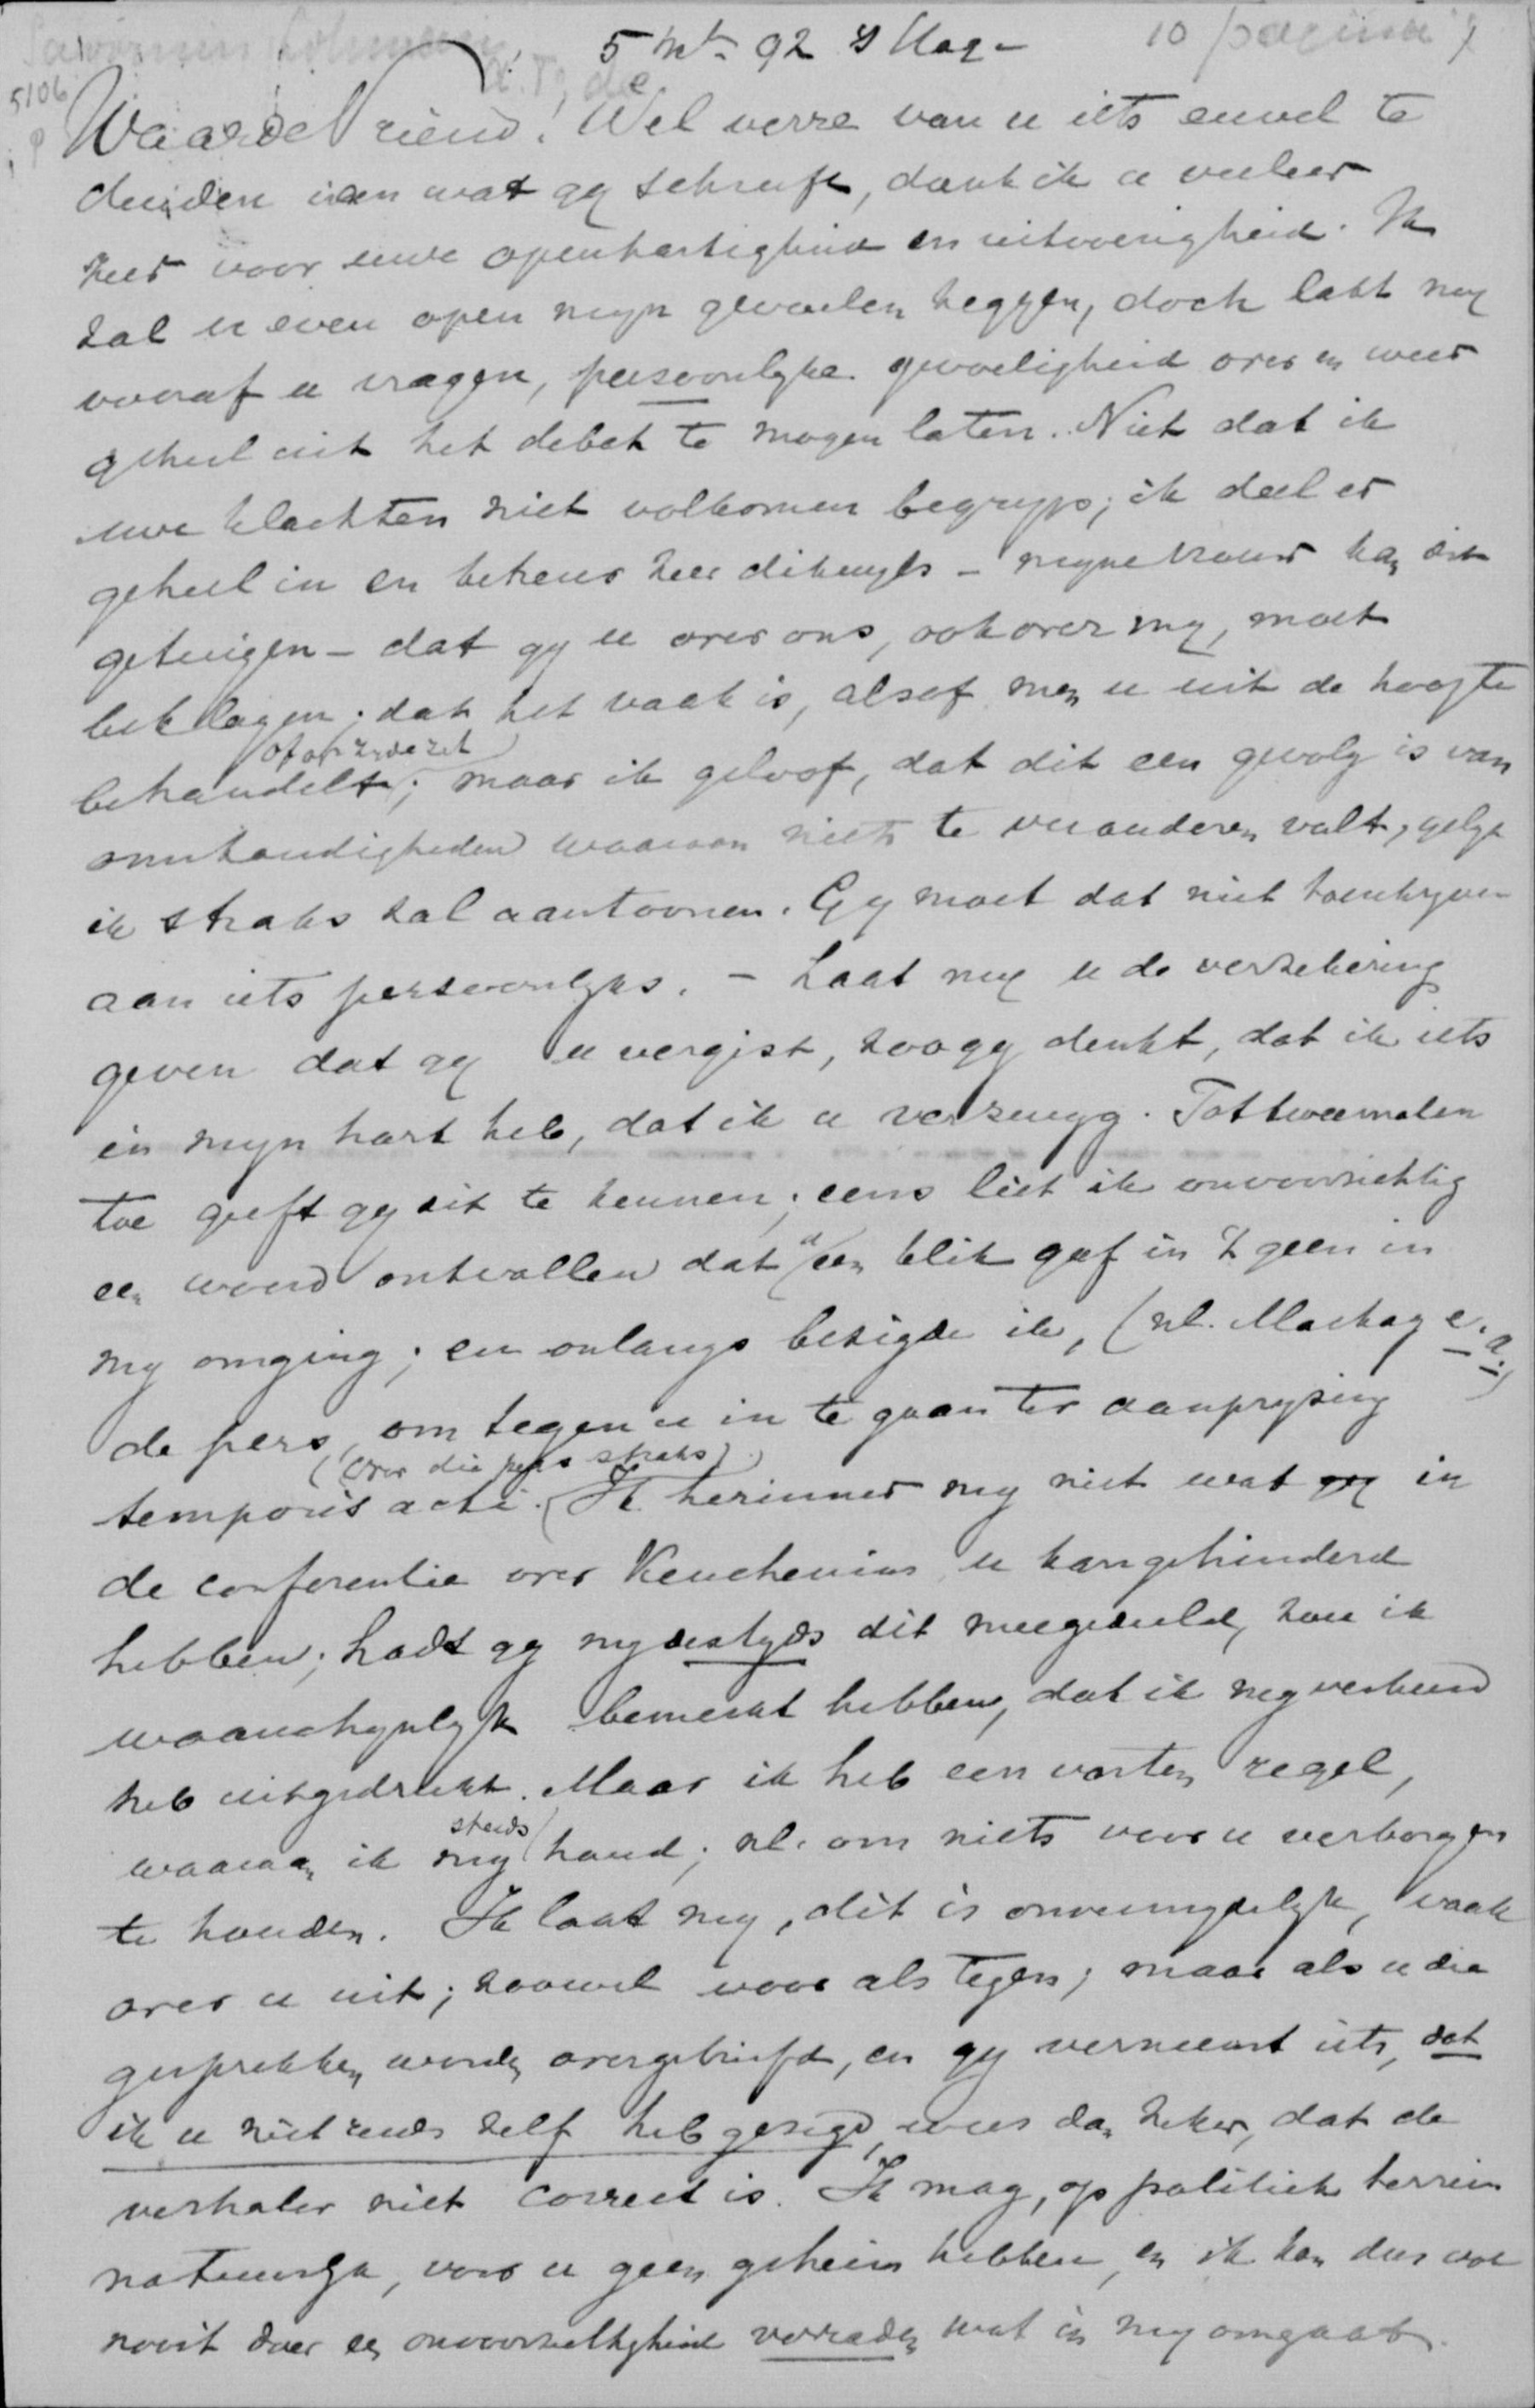 Savornin Lohman 10 pagina's
5 Nt. 92 's Hag-
A. F. de
5106
Waarde Vriend! Wel verre van u iets euvel te
duiden van wat gy schreeft, dank ik u veeleer
zeer voor uwe openhartigheid en uitvoerigheid. Ik
zal u even open myn gevoelen zeggen, doch laat my
vooraf u vragen, persoonlyke gevoeligheid over en weer
geheel uit het debat te mogen laten. Niet dat ik
uwe klachten niet volkomen begryp; ik deel er
geheel in en betreur zeer dikwyls - myne vrouw kan dit
getuigen - dat gy u over ons, ook over my, moet
beklagen; dat het vaak is, alsof men u uit de hoogte
behandelt; maar ik geloof, dat dit een gevolg is van
omstandigheden waaraan niets te veranderen valt, gelyk
ik straks zal aantoonen. Gy moet dat niet toeschryven
aan iets persoonlyks. - Laat my u de verzekering
geven dat gy u vergist, zoo gy denkt, dat ik iets
in myn hart heb, dat ik u verzwyg. Tot tweemalen
toe geeft gy dit te kennen; eens liet ik onvoorzichtig
een woord ontvallen dat u een blik gaf in 't geen in
my omging; en onlangs bezigde ik, (nl. Mackay e.a.)
de pers, om tegen u in te gaan ter aanpryzing
(Over die pers straks)
temporis acti. Ik herinner my niet wat in
de conferentie over Keuchenius u kan gehinderd
hebben; hadt gy my destyds dit meegedeeld, zou ik
waarschynlyk bemerkt hebben, dat ik my verkeerd
heb uitgedrukt. Maar ik heb een vasten regel,
waaraan ik my steeds houd; nl. om niets voor u verborgen
te houden. Ik laat my, dit is onvermydelyk, vaak
over u uit; zoowel voor als tegen; maar als u die
gesprekken worden overgebriefd, en gy verneemt iets, dat
ik u niet reeds zelf heb gezegd, wees dan zeker, dat de
verhaler niet correct is. Ik mag, op politiek terrein
natuurlyk, voor u geen geheim hebben, en ik kan dus ook
nooit door een onvoorzichtigheid verraden wat in my omgaat.